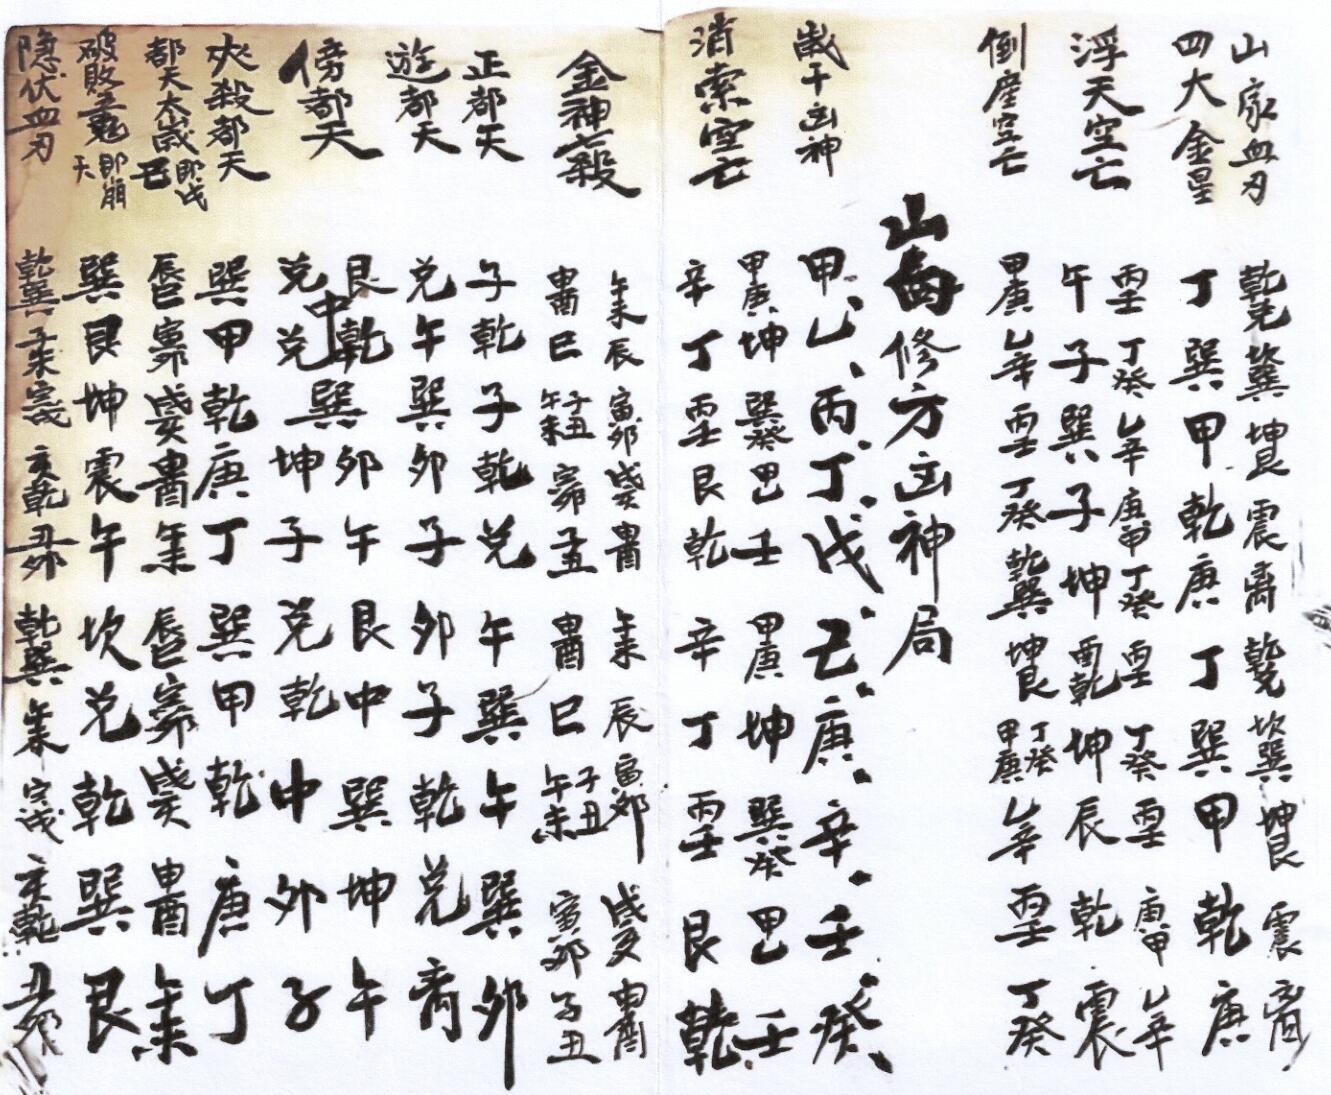 山家血刃 乾兑 坎巽 坤艮 震 离 乾兑 坎巽 坤艮 震 离
四大金星 丁 巽 甲 乾 庚 丁 巽 甲 乾 庚
浮天空亡 丙壬 丁癸 乙辛 庚甲 丁癸 丙壬 丁癸 丙壬 庚甲 乙辛
午 子 巽 子 坤 酉乾 坤 辰 乾 震
倒座空亡 甲庚 乙辛 丙壬 丁癸 乾巽 坤艮 丁癸甲庚 乙辛 丙壬 丁癸
山向修方凶神局
歲干凶神 甲、乙、丙、丁、戊、己、庚、辛、壬、癸、
消索空亡 甲庚 坤 巽癸 甲乙 壬 甲庚 坤 巽癸 甲乙 壬
辛 丁 丙壬 艮 乾 辛 丁 丙壬 艮 乾
金神七殺 午未 辰 寅卯 戌亥 申酉 午未 辰 寅卯 戌亥 申酉
申酉 巳 子丑午未 寅卯 子丑 申酉 巳 子丑午未 寅卯 子丑
正都天 子 乾 子 乾 兑 午 巽 午 巽 卯
遊都天 兑 午 巽 卯 子 卯 子 乾 兑 离
傍都天 艮 中乾 巽 卯 午 艮 中 巽 坤 午
兑 兑 坤 子 兑 乾 中 卯 子
夾殺都天 巽 甲 乾 庚 丁 巽 甲 乾 庚 丁
都天太歲即戊己 辰巳 寅卯 戌亥 申酉 午未 辰巳 寅卯 戌亥 申酉 午未
破敗五鬼即崩天 巽 艮 坤 震 午 坎 兑 乾 巽 艮
隐伏血刃 乾巽 子未 寅戌 亥乾 丑卯 乾巽 午未 寅戌 亥乾 丑卯